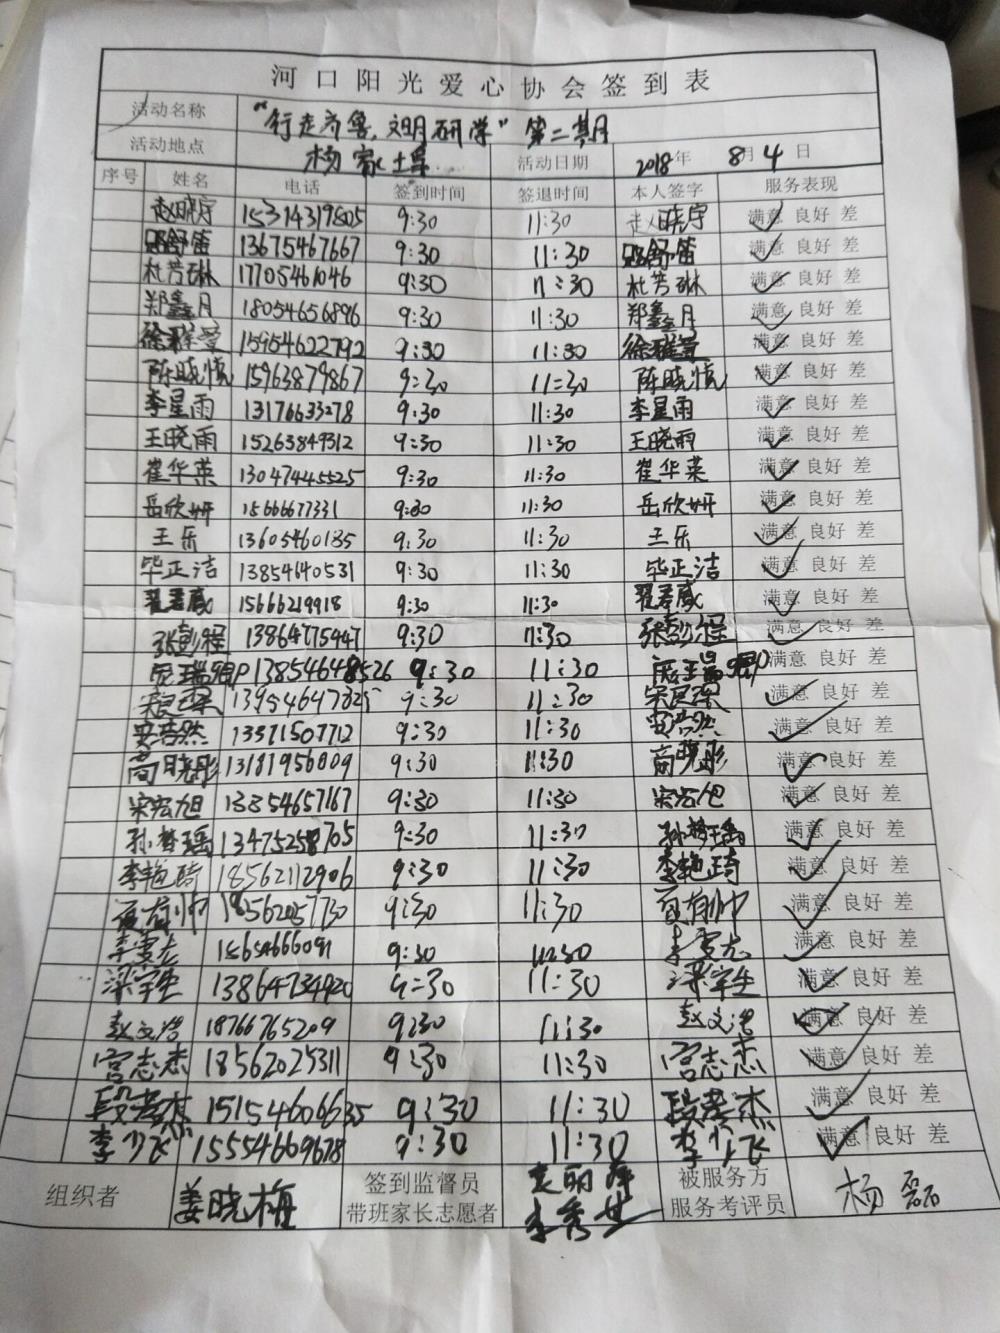 河口阳光爱心协会签到表
活动名称 "行走齐鲁，文明研学"第二期
活动地点 杨家 活动日期 2018年 8月4日
序号 姓名 电话 签到时间 签退时间 本人签字 服务表现
赵晓宇 15314319805 9:30 11:30 赵晓宇 满意 良好 差
舒笛 13675467667 9:30 11:30 舒笛 满意 良好 差
杜芳琳 17705461046 9:30 11:30 杜芳琳 满意 良好 差
郑鑫月 18054656896 9:30 11:30 郑鑫月 满意 良好 差
徐雅萱 15954622792 9:30 11:30 徐雅萱 满意 良好 差
陈晓慎 15963879867 9:30 11:30 陈晓慎 满意 良好 差
李星雨 13176633278 9:30 11:30 李星雨 满意 良好 差
王晓雨 15263849312 9:30 11:30 王晓雨 满意 良好 差
崔华英 13047445525 9:30 11:30 崔华英 满意 良好 差
岳欣妍 15666677331 9:30 11:30 岳欣妍 满意 良好 差
王乐 13605460185 9:30 11:30 王乐 满意 良好 差
毕正洁 13854640531 9:30 11:30 毕正洁 满意 良好 差
翟君威 15666219918 9:30 11:30 翟君威 满意 良好 差
张彭程 13864775447 9:30 11:30 张彭程 满意 良好 差
13854648526 9:30 11:30 满意 良好 差
宋良琛 9:30 11:30 宋良琛 满意 良好 差
安浩然 13371507712 9:30 11:30 安浩然 满意 良好 差
高晓彤 13181956009 9:30 11:30 高晓彤 满意 良好 差
宋宏旭 13854657167 9:30 11:30 宋宏旭 满意 良好 差
孙梦瑶 13475258705 9:30 11:30 孙梦瑶 满意 良好 差
李艳琦 18562112906 9:30 11:30 李艳琦 满意 良好 差
夏有帅 18562057730 9:30 11:30 夏有帅 满意 良好 差
李雯龙 9:30 11:30 李雯龙 满意 良好 差
梁宇生 13864734920 9:30 11:30 梁宇生 满意 良好 差
赵文浩 18766765209 9:30 11:30 赵文浩 满意 良好 差
宫志杰 18562025311 9:30 11:30 宫志杰 满意 良好 差
段孝杰 15154606635 9:30 11:30 段孝杰 满意 良好 差
李少飞 15554609678 9:30 11:30 李少飞 满意 良好 差
组织者 姜晓梅 签到监督员 带班家长志愿者 袁丽萍 李秀芝 被服务方 服务考评员 杨磊